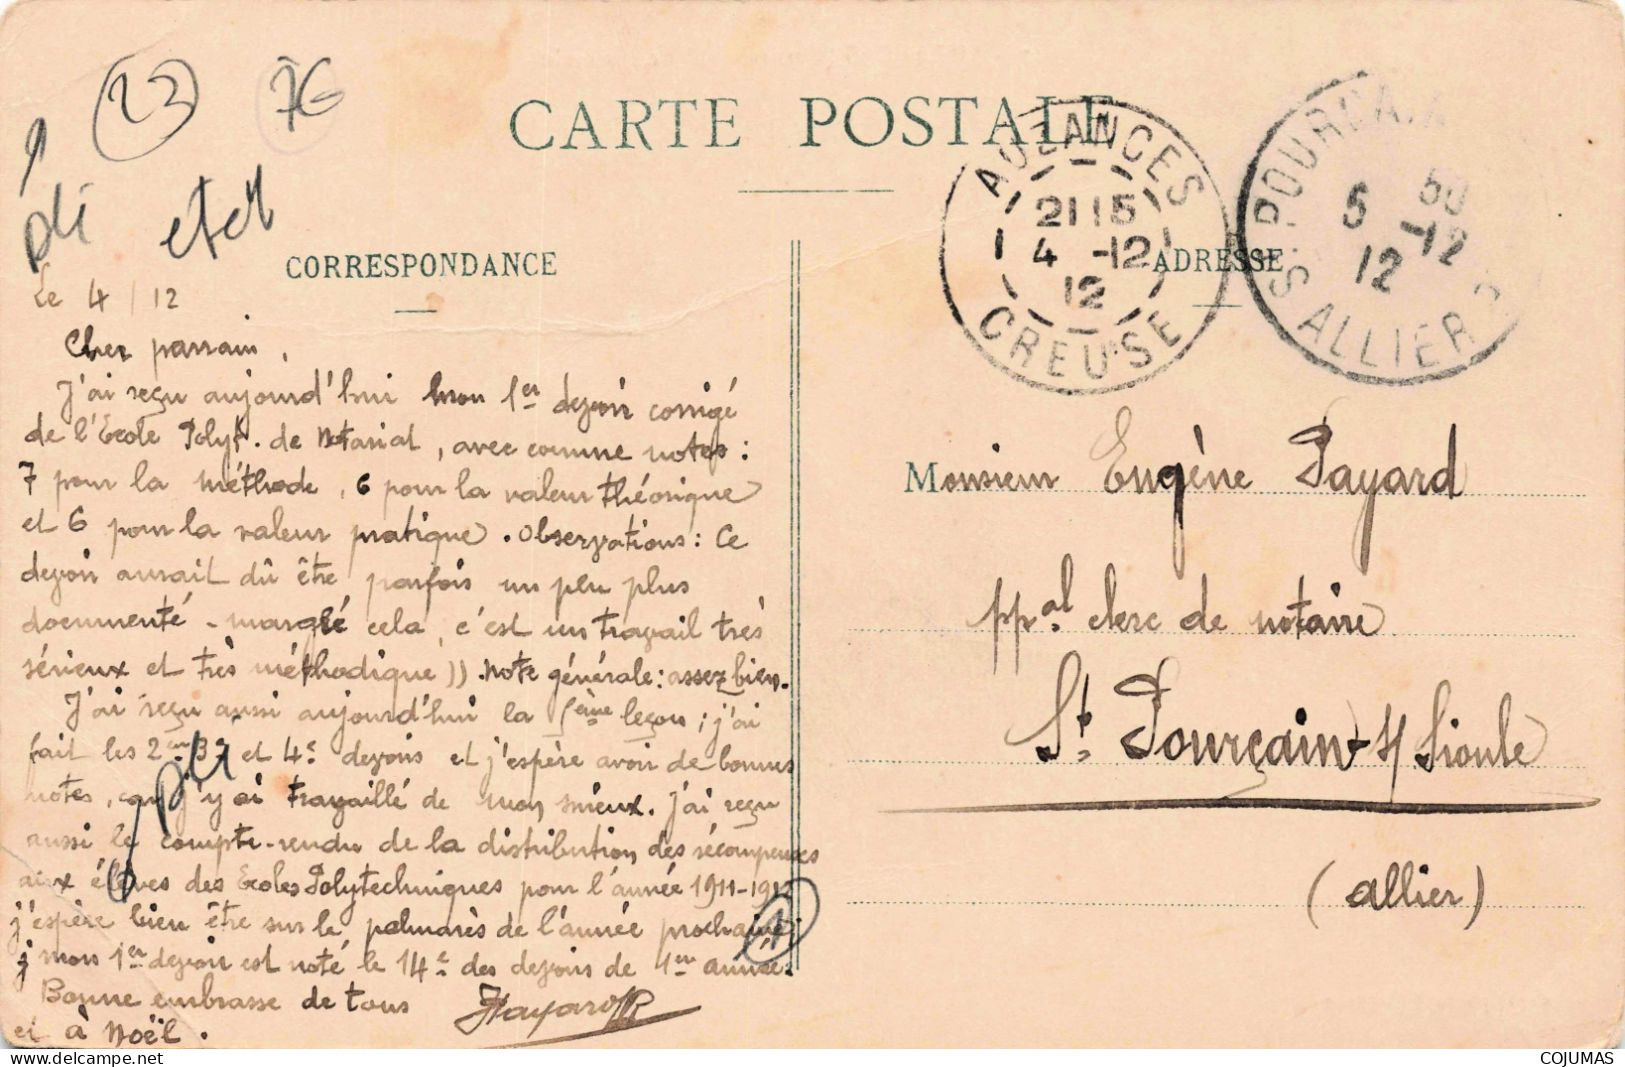 23
76
CARTE POSTALE
AUZANCES
21 15
4 -12
12
CREUSE
ST POURÇAIN
5 -12
12
ALLIER
CORRESPONDANCE
ADRESSE
Le 4/12
Cher parrain,
J'ai reçu aujourd'hui mon 1er devoir corrigé
de l'Ecole Polyt. de Notariat, avec comme notes :
7 pour la méthode, 6 pour la valeur théorique
et 6 pour la valeur pratique. Observations : Ce
devoir aurait dû être parfois un peu plus
documenté - malgré cela, c'est un travail très
sérieux et très méthodique )). Note générale : assez bien.
J'ai reçu aussi aujourd'hui la 5ème leçon ; j'ai
fait les 2e 3e et 4e devoirs et j'espère avoir de bonnes
notes, car j'y ai travaillé de mon mieux. J'ai reçu
aussi le compte-rendu de la distribution des récompenses
aux élèves des Ecoles Polytechniques pour l'année 1911-1912
j'espère bien être sur le palmarès de l'année prochaine ;
mon 1er devoir est noté le 14e des devoirs de 1ère année.
Bonne embrasse de tous
et à Noël.
Monsieur Eugène Payard
ppal clerc de notaire
St Pourçain s/ Sioule
(Allier)
COJUMAS